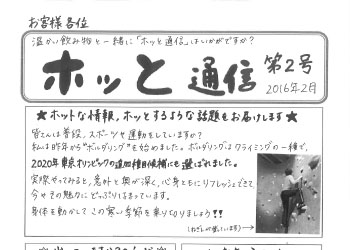 お客様各位
温かい飲み物と一緒に「ホッと通信」はいかがですか?
ホッと通信 第2号
2016年2月
★ホットな情報、ホッとするような話題をお届けします★
皆さんは普段、スポーツや運動をしていますか?
私は昨年から"ボルダリング"を始めました。ボルダリングはクライミングの一種で、
2020年東京オリンピックの追加種目候補にも選ばれました。
実際やってみると、意外と奥が深く、心身ともにリフレッシュできて
今やその魅力にどっぷりはまっています。
身体を動かしてこの寒い季節を乗り切りましょう!!